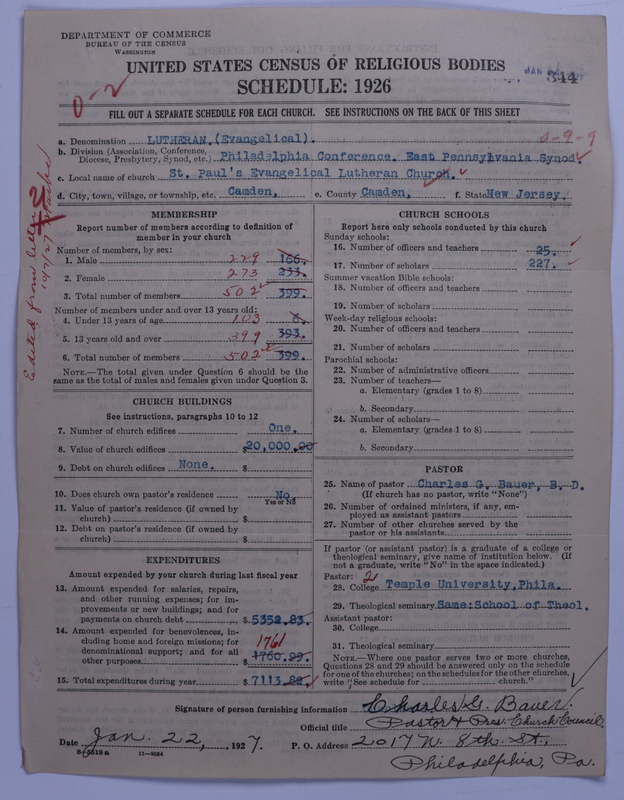 DEPARTMENT OF COMMERCE
BUREAU OF THE CENSUS
WASHINGTON
UNITED STATES CENSUS OF RELIGIOUS BODIES
SCHEDULE: 1926
344
0-2
FILL OUT A SEPARATE SCHEDULE FOR EACH CHURCH. SEE INSTRUCTIONS ON THE BACK OF THIS SHEET
a. Denomination LUTHERAN.(Evangelical). 0-9-9
b. Division (Association, Conference, Diocese, Presbytery, Synod, etc.) Philadelphia Conference. East Pennsylvania Synod.
c. Local name of church St. Paul's Evangelical Lutheran Church.
d. City, town, village, or township, etc. Camden. e. County Camden. f. State New Jersey.
Edited from letter
MEMBERSHIP
Report number of members according to definition of
member in your church
Number of members, by sex:
1. Male 229 166.
2. Female 273 233.
3. Total number of members 502 399.
Number of members under and over 13 years old:
4. Under 13 years of age 103 6.
5. 13 years old and over 399 393.
6. Total number of members 502 399.
NOTE.—The total given under Question 6 should be the
same as the total of males and females given under Question 3.
CHURCH BUILDINGS
See instructions, paragraphs 10 to 12
7. Number of church edifices One.
8. Value of church edifices $20,000.00
9. Debt on church edifices None. $
10. Does church own pastor's residence No.
Yes or No
11. Value of pastor's residence (if owned by
church) $
12. Debt on pastor's residence (if owned by
church) $
EXPENDITURES
Amount expended by your church during last fiscal year
13. Amount expended for salaries, repairs,
and other running expenses; for im-
provements or new buildings; and for
payments on church debt $ 5352.83.
14. Amount expended for benevolences, in-
cluding home and foreign missions; for 1761
denominational support; and for all
other purposes 1760.99.
15. Total expenditures during year $ 7113.82.
CHURCH SCHOOLS
Report here only schools conducted by this church
Sunday schools:
16. Number of officers and teachers 25.
17. Number of scholars 227.
Summer vacation Bible schools:
18. Number of officers and teachers
19. Number of scholars
Week-day religious schools:
20. Number of officers and teachers
21. Number of scholars
Parochial schools:
22. Number of administrative officers
23. Number of teachers—
a. Elementary (grades 1 to 8)
b. Secondary
24. Number of scholars—
a. Elementary (grades 1 to 8)
b. Secondary
PASTOR
25. Name of pastor Charles G. Bauer, B. D.
(If church has no pastor, write "None")
26. Number of ordained ministers, if any, em-
ployed as assistant pastors
27. Number of other churches served by the
pastor or his assistants
If pastor (or assistant pastor) is a graduate of a college or
theological seminary, give name of institution below. (If
not a graduate, write "No" in the space indicated.)
Pastor: 2
28. College Temple University,Phila.
29. Theological seminary Same:School of Theol.
Assistant pastor:
30. College
31. Theological seminary
NOTE.—Where one pastor serves two or more churches,
Questions 28 and 29 should be answered only on the schedule
for one of the churches; on the schedules for the other churches,
write "See schedule for church."
Signature of person furnishing information Charles G. Bauer.
Official title Pastor & Pres. Church Council
Date Jan. 22, 1927. P. O. Address 2017 N. 8th. St.,
8-5518a 11-9054
Philadelphia, Pa.